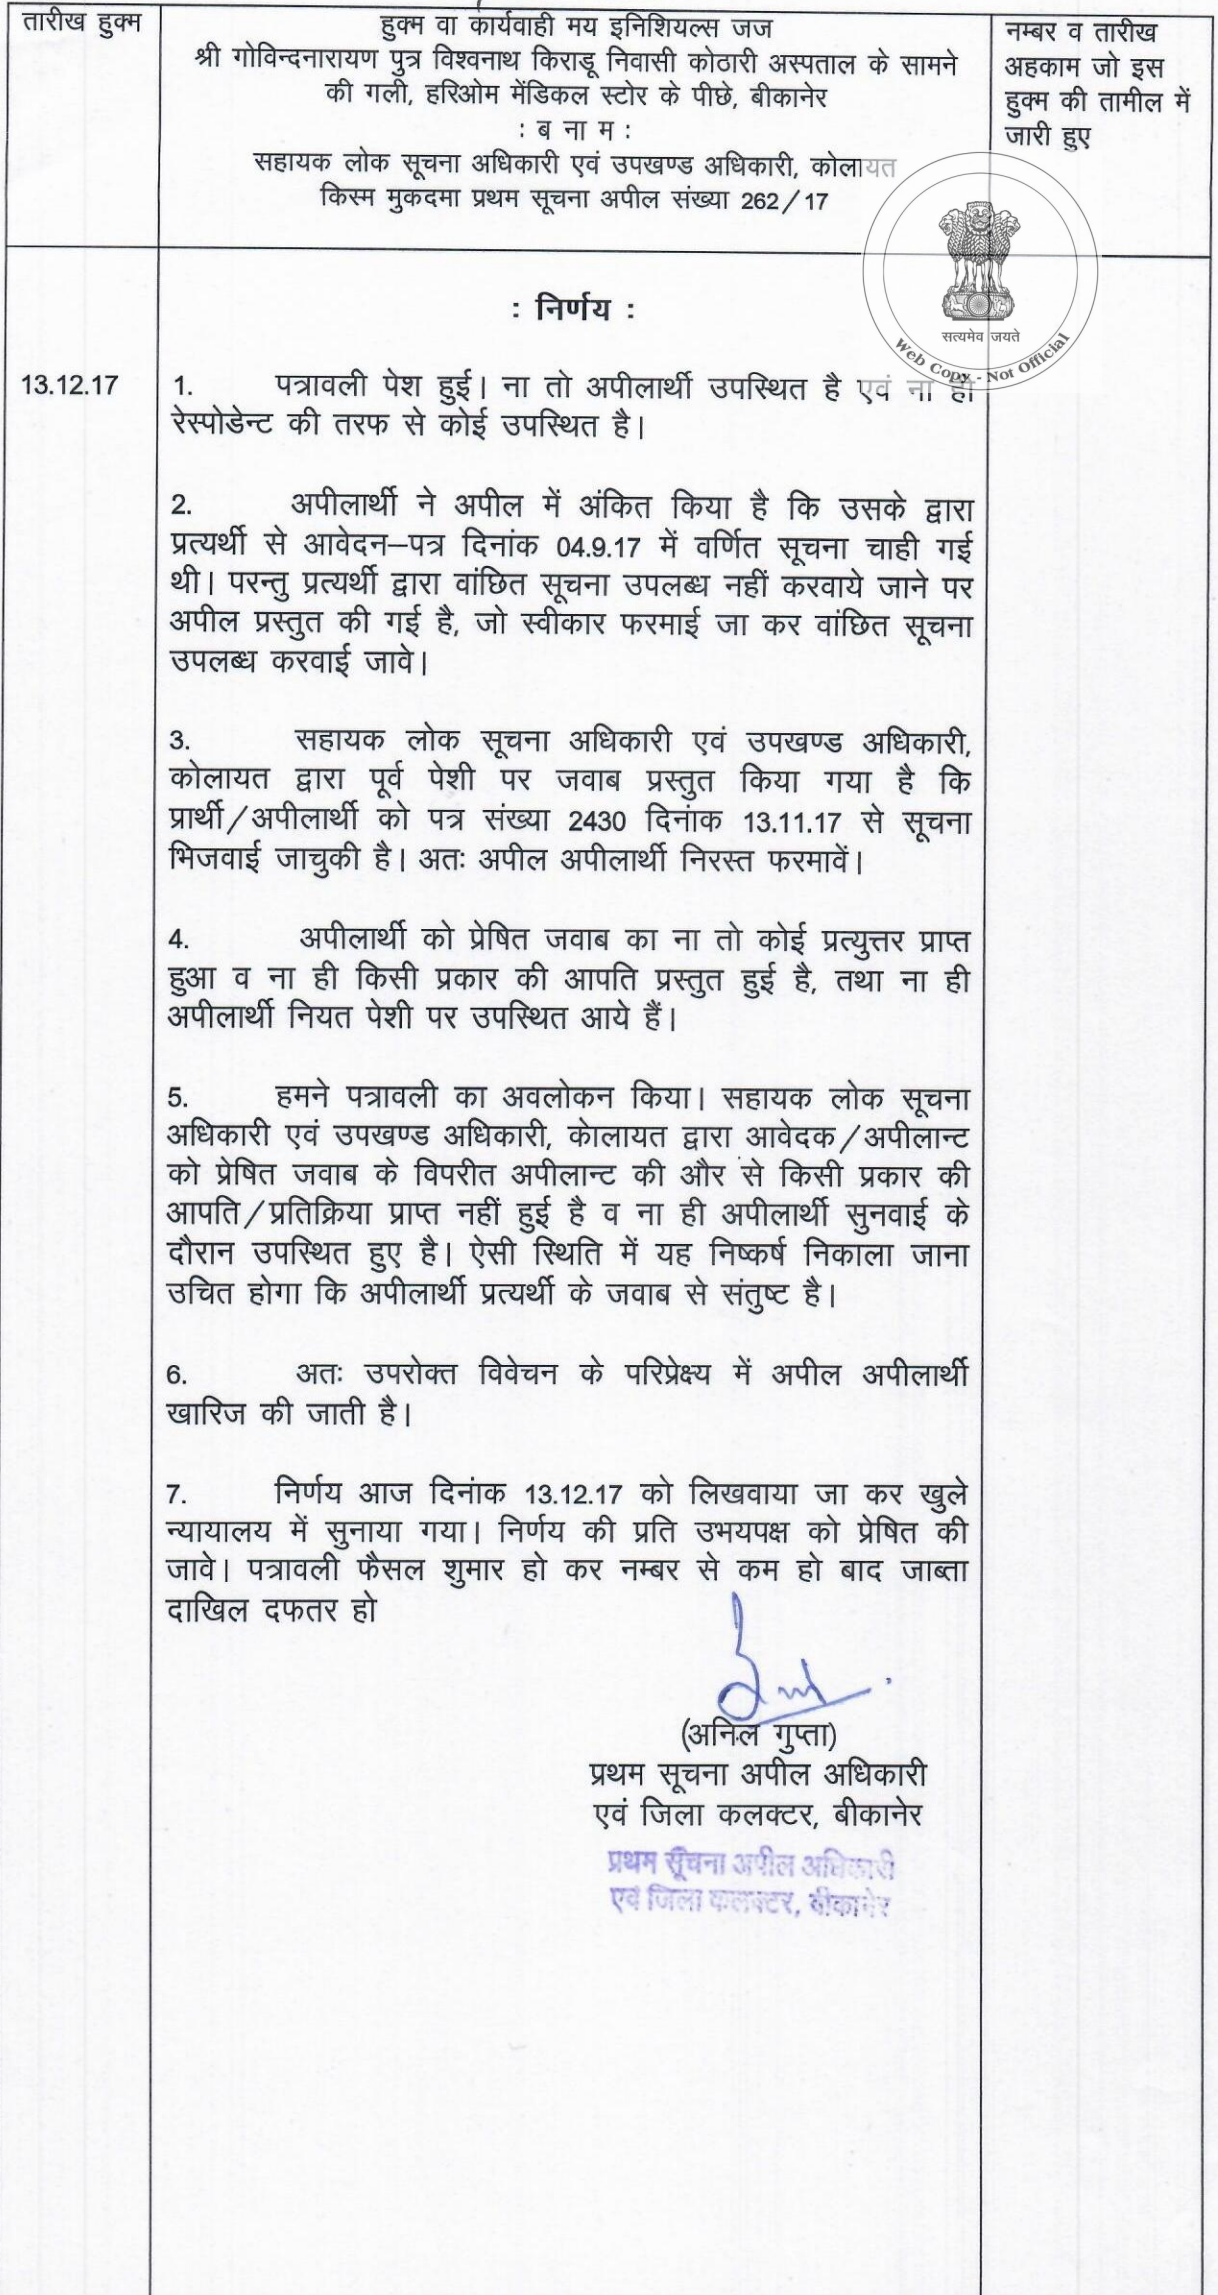 तारीख हुक्म
हुक्म वा कार्यवाही मय इनिशियल्स जज
श्री गोविन्दनारायण पुत्र विश्वनाथ किराडू निवासी कोठारी अस्पताल के सामने
की गली, हरिओम मेंडिकल स्टोर के पीछे, बीकानेर
: ब ना म :
सहायक लोक सूचना अधिकारी एवं उपखण्ड अधिकारी, कोलायत
किस्म मुकदमा प्रथम सूचना अपील संख्या 262/17
नम्बर व तारीख
अहकाम जो इस
हुक्म की तामील में
जारी हुए
सत्यमेव जयते
Web Copy - Not Official
: निर्णय :
13.12.17
1. पत्रावली पेश हुई। ना तो अपीलार्थी उपस्थित है एवं ना ही
रेस्पोडेन्ट की तरफ से कोई उपस्थित है।
2. अपीलार्थी ने अपील में अंकित किया है कि उसके द्वारा
प्रत्यर्थी से आवेदन–पत्र दिनांक 04.9.17 में वर्णित सूचना चाही गई
थी। परन्तु प्रत्यर्थी द्वारा वांछित सूचना उपलब्ध नहीं करवाये जाने पर
अपील प्रस्तुत की गई है, जो स्वीकार फरमाई जा कर वांछित सूचना
उपलब्ध करवाई जावे।
3. सहायक लोक सूचना अधिकारी एवं उपखण्ड अधिकारी,
कोलायत द्वारा पूर्व पेशी पर जवाब प्रस्तुत किया गया है कि
प्रार्थी/अपीलार्थी को पत्र संख्या 2430 दिनांक 13.11.17 से सूचना
भिजवाई जाचुकी है। अतः अपील अपीलार्थी निरस्त फरमावें।
4. अपीलार्थी को प्रेषित जवाब का ना तो कोई प्रत्युत्तर प्राप्त
हुआ व ना ही किसी प्रकार की आपति प्रस्तुत हुई है, तथा ना ही
अपीलार्थी नियत पेशी पर उपस्थित आये हैं।
5. हमने पत्रावली का अवलोकन किया। सहायक लोक सूचना
अधिकारी एवं उपखण्ड अधिकारी, केालायत द्वारा आवेदक/अपीलान्ट
को प्रेषित जवाब के विपरीत अपीलान्ट की और से किसी प्रकार की
आपति/प्रतिक्रिया प्राप्त नहीं हुई है व ना ही अपीलार्थी सुनवाई के
दौरान उपस्थित हुए है। ऐसी स्थिति में यह निष्कर्ष निकाला जाना
उचित होगा कि अपीलार्थी प्रत्यर्थी के जवाब से संतुष्ट है।
6. अतः उपरोक्त विवेचन के परिप्रेक्ष्य में अपील अपीलार्थी
खारिज की जाती है।
7. निर्णय आज दिनांक 13.12.17 को लिखवाया जा कर खुले
न्यायालय में सुनाया गया। निर्णय की प्रति उभयपक्ष को प्रेषित की
जावे। पत्रावली फैसल शुमार हो कर नम्बर से कम हो बाद जाब्ता
दाखिल दफतर हो
(अनिल गुप्ता)
प्रथम सूचना अपील अधिकारी
एवं जिला कलक्टर, बीकानेर
प्रथम सूचना अपील अधिकारी
एवं जिला कलक्टर, बीकानेर